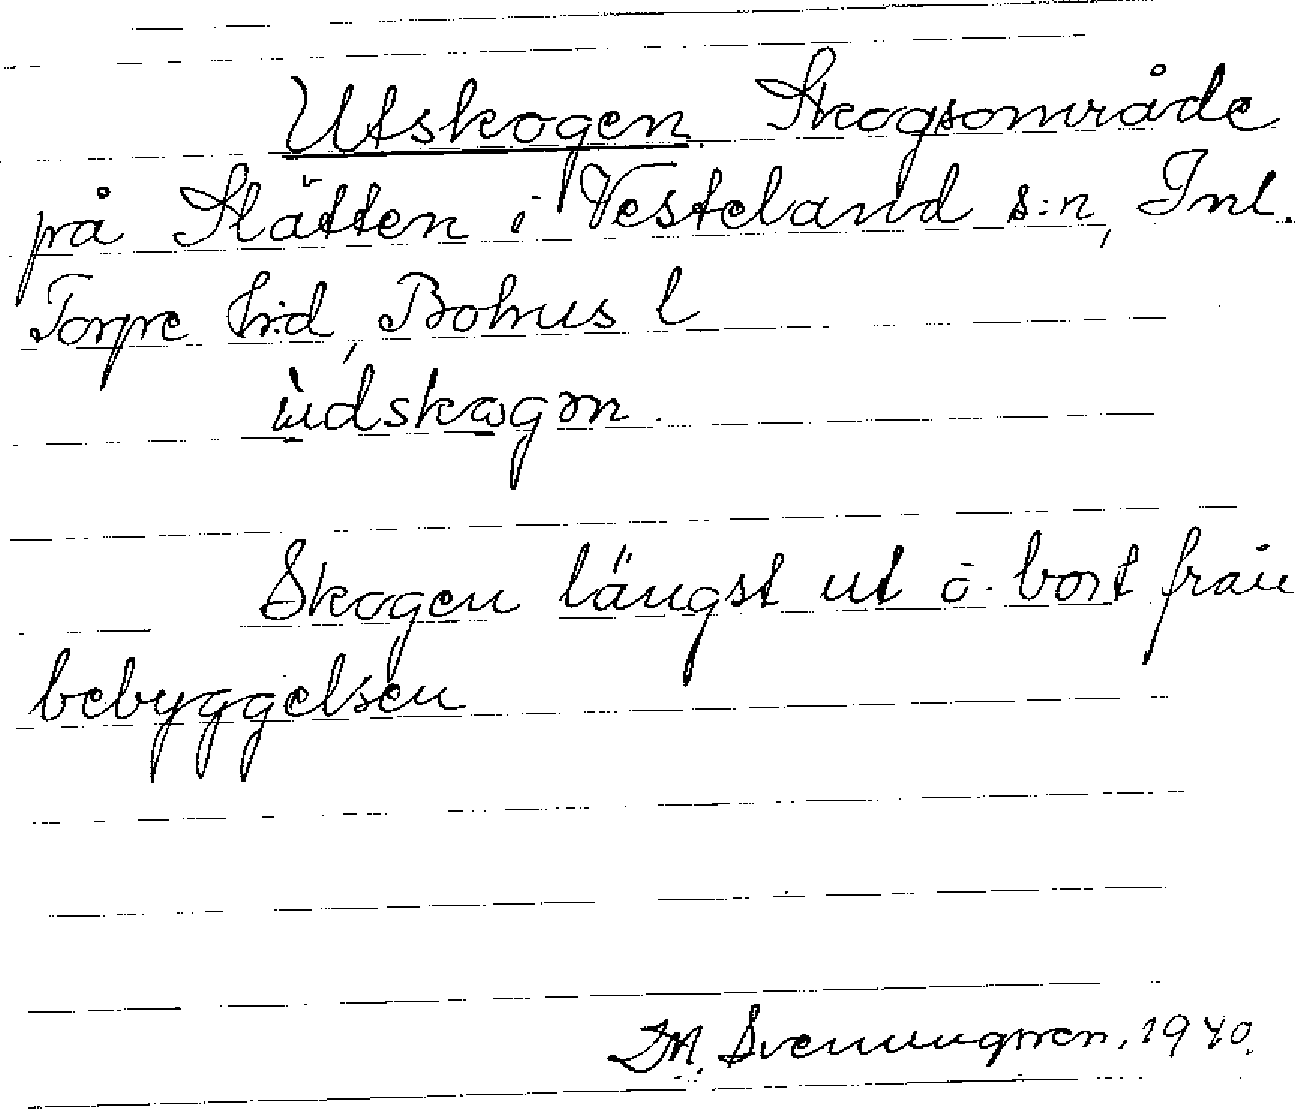 Utskogen Skogsområde
på Slätten i Vesteland s:n, Inl.
Torpe h:d, Bohus l
ùdskogən.
Skogen längst ut o. bort från
bebyggelsen
1940.